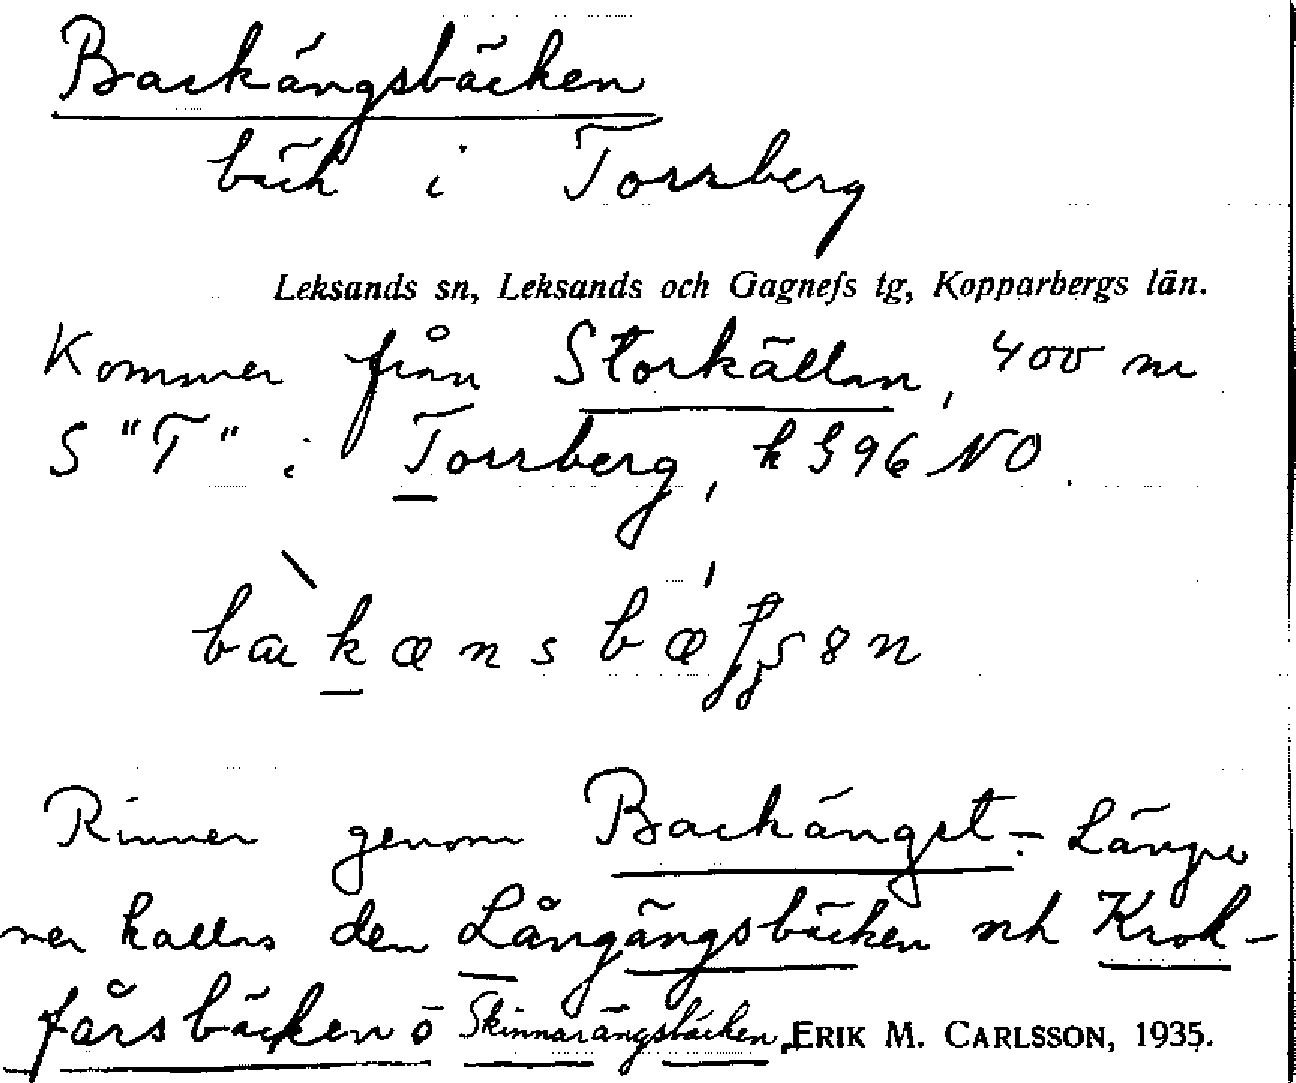 Backängsbäcken
bäck i Torrberg
Leksands sn, Leksands och Gagnefs tg, Kopparbergs län.
Kommer från Storkällan, 400 m
S "T" i Torrberg, k 396 NO
Rinner genom Backängst. – Längre
ner kallas den Långängsbäcken och Krok-
forsbäcken o Skinnarängsbäcken. ERIK M. CARLSSON, 1935.